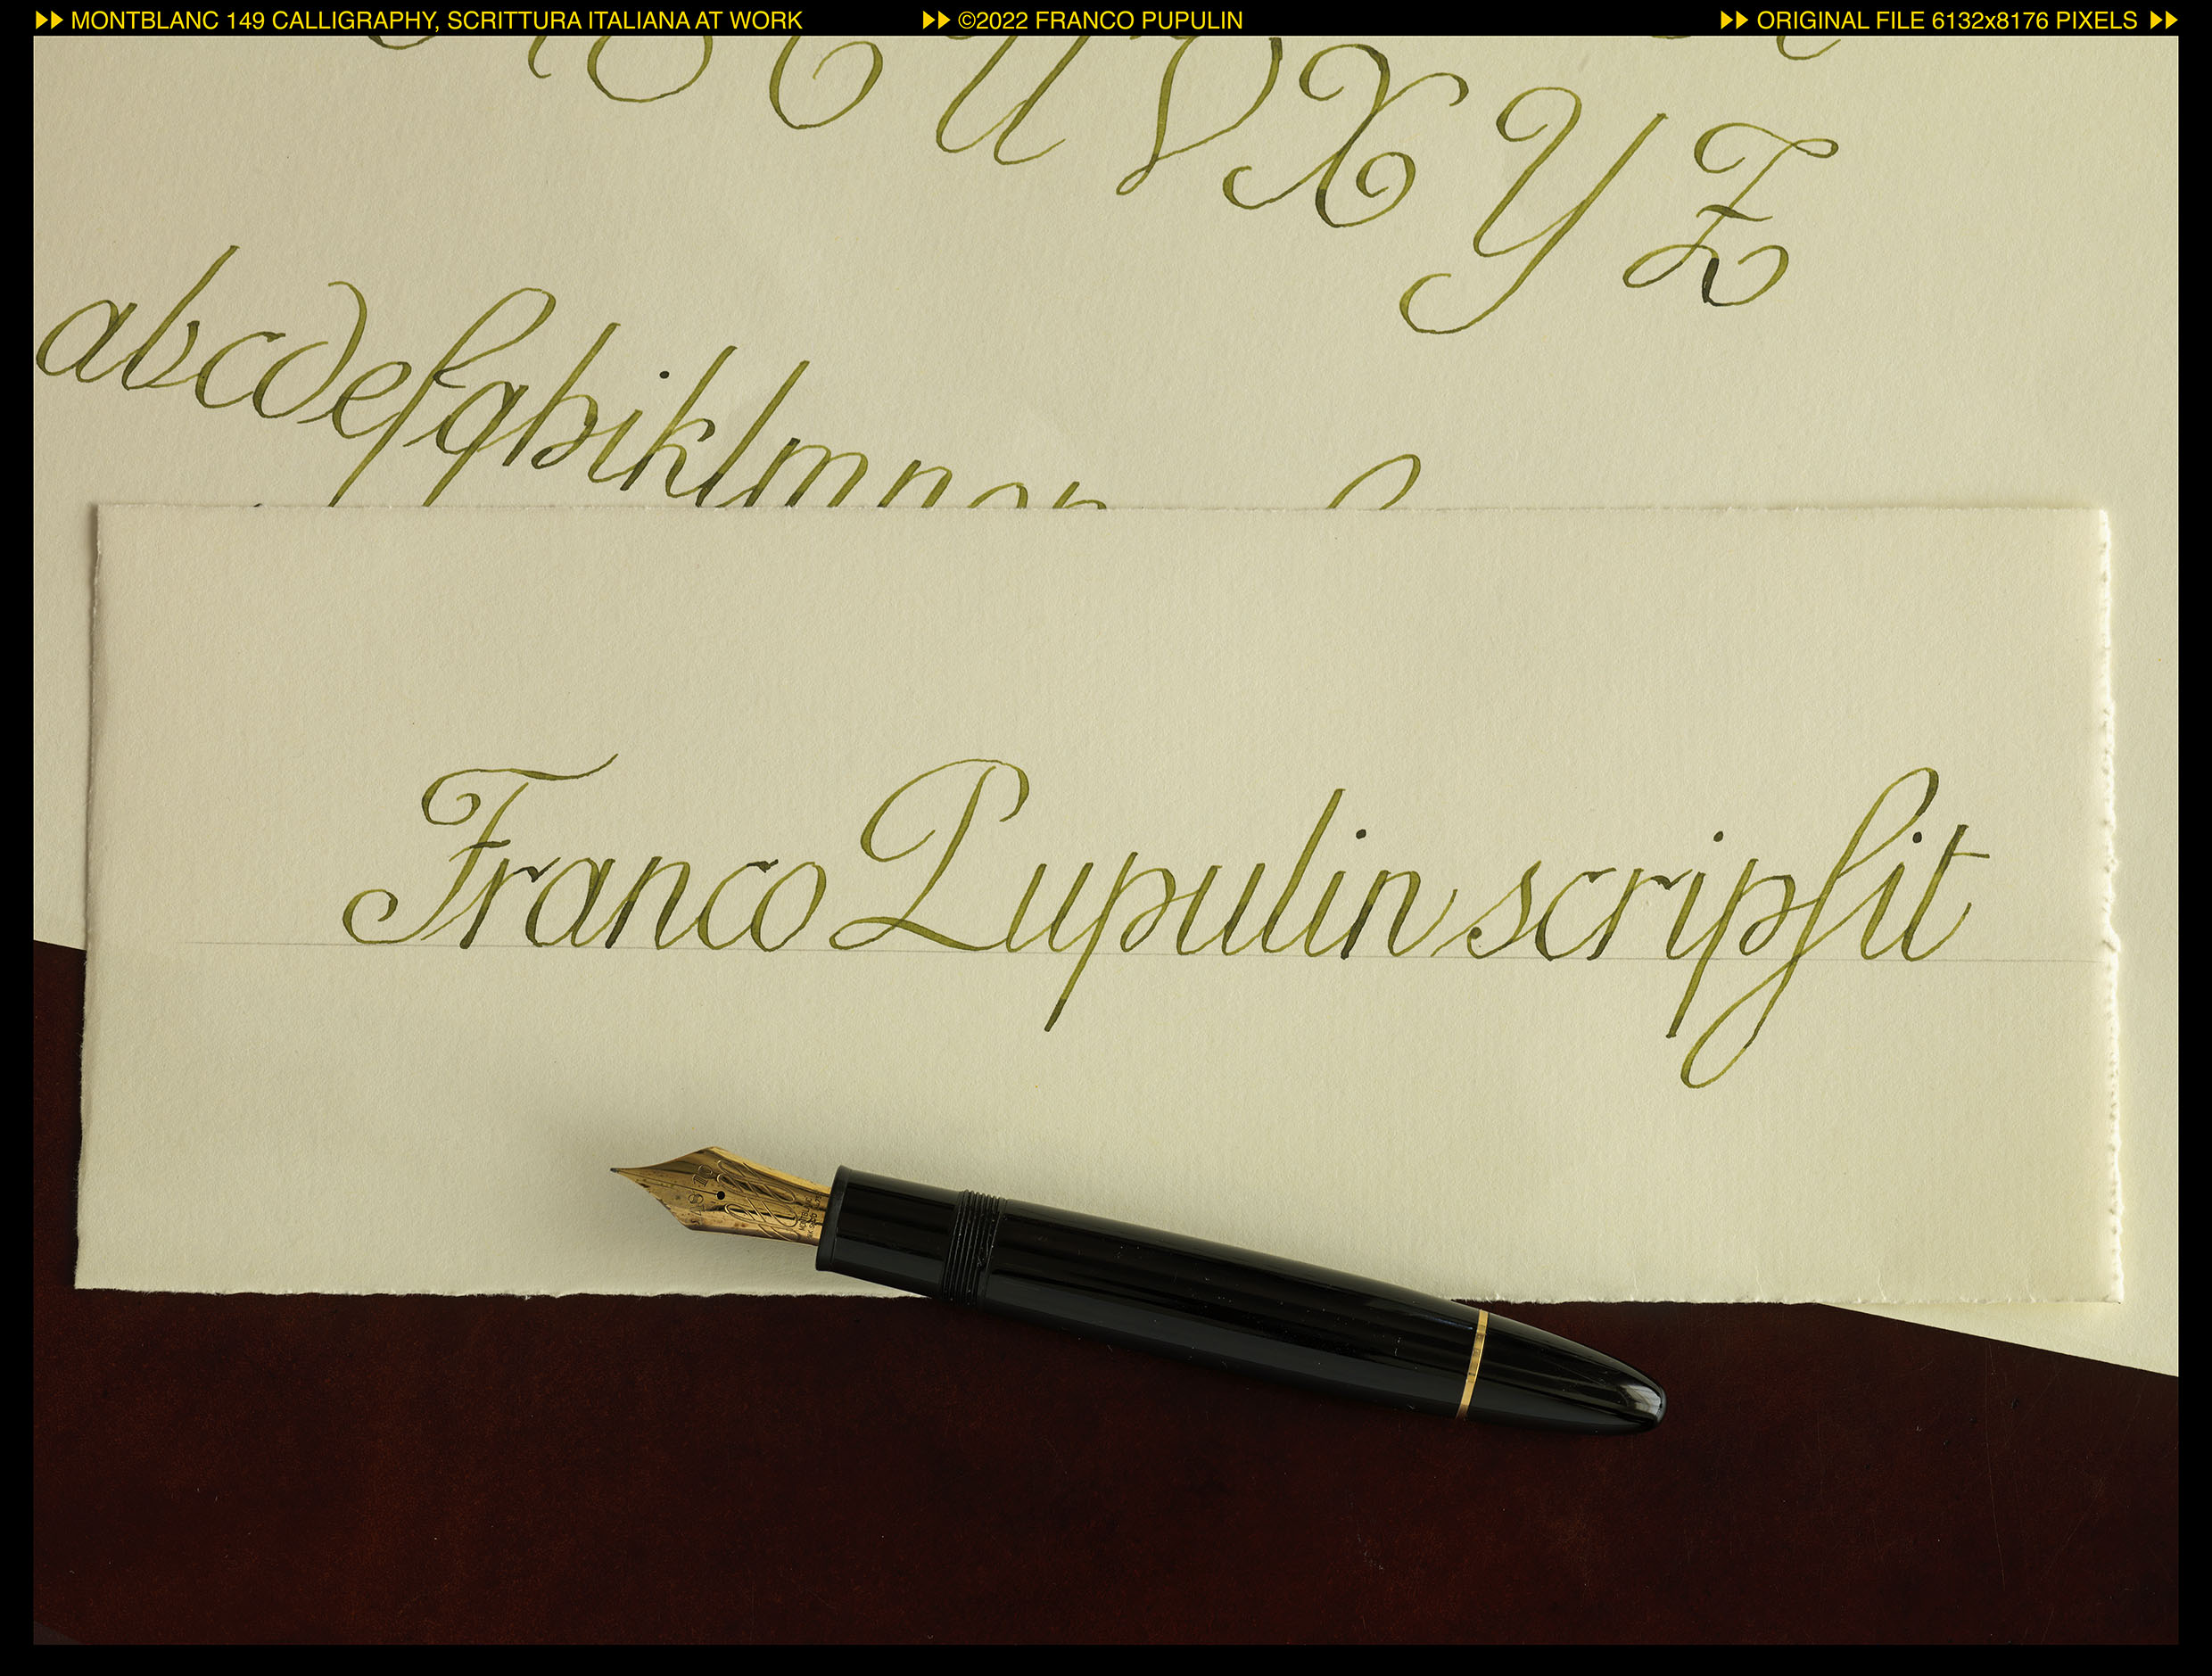 MONTBLANC 149 CALLIGRAPHY, SCRITTURA ITALIANA AT WORK ©2022 FRANCO PUPULIN ORIGINAL FILE 6132x8176 PIXELS
U V X Y Z
abcdefghiklmnop
Franco Pupulin scripſit